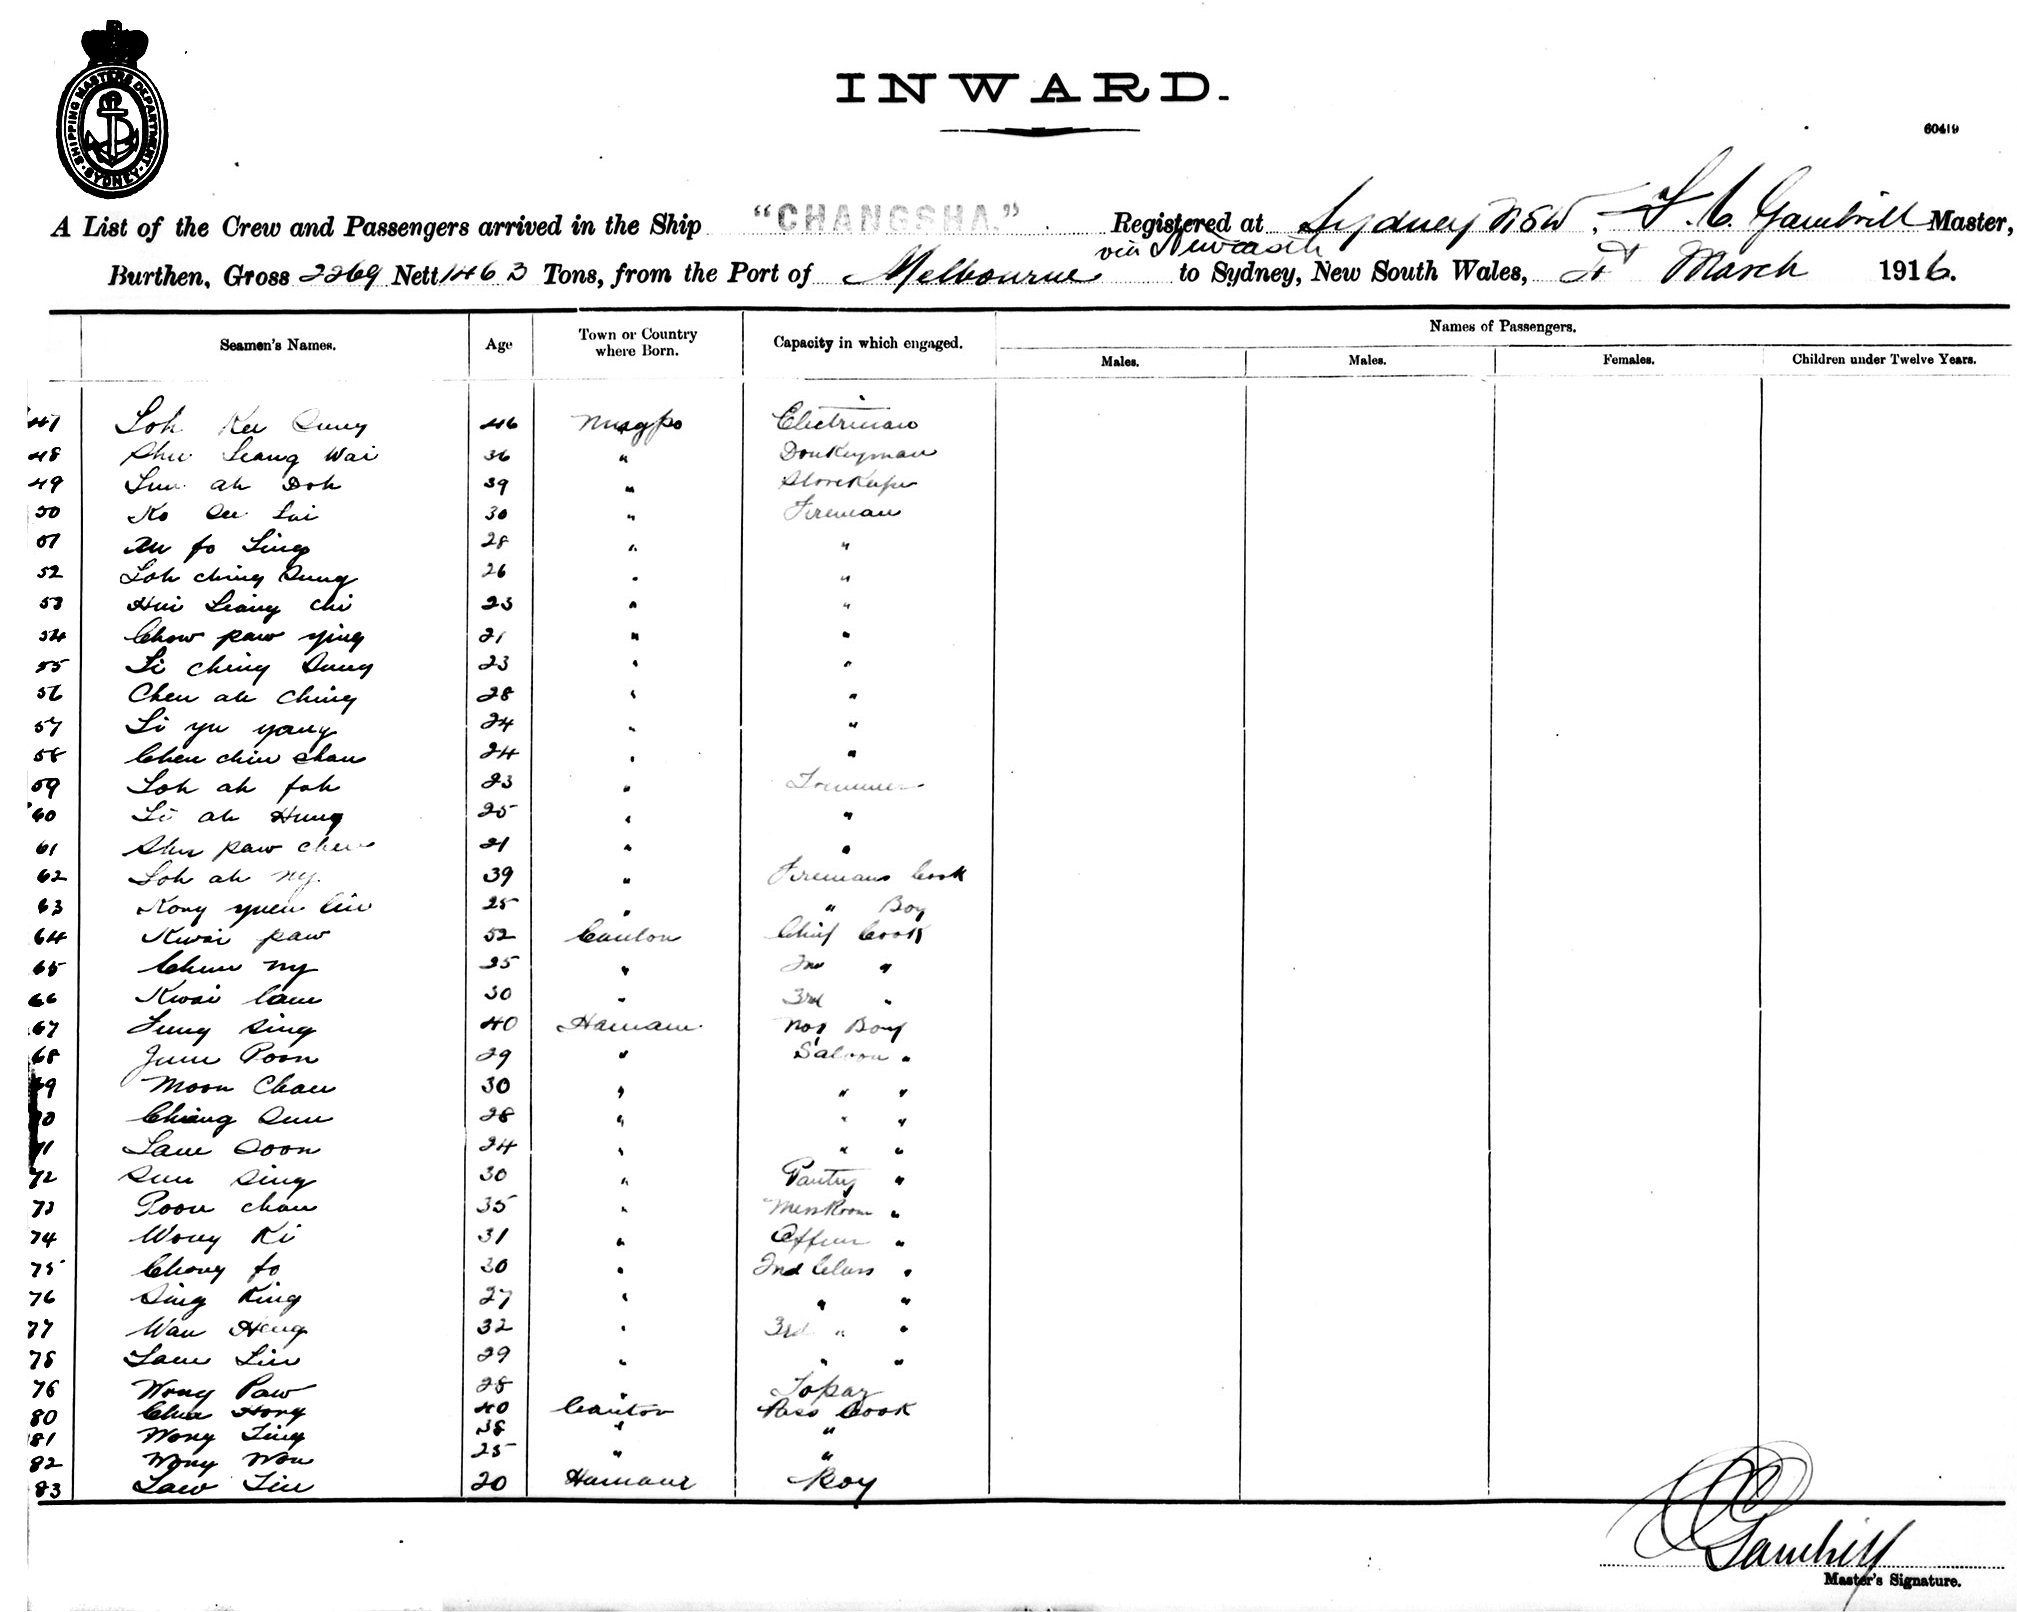 SHIPPING MASTERS DEPARTMENT
SYDNEY
INWARD.
60419
A List of the Crew and Passengers arrived in the Ship "CHANGSHA." Registered at Sydney NSW, Gambrill Master,
via Newcastle
Burthen, Gross 2269 Nett 1463 Tons, from the Port of Melbourne to Sydney, New South Wales, March 1916.
Names of Passengers.
Seamen's Names. Age Town or Country where Born. Capacity in which engaged. Males. Males. Females. Children under Twelve Years.
47 Loh Kee Sung 46 Ningpo Electrician
48 Shu Leang Wai 36 " Donkeyman
49 ah Doh 39 " Storekeeper
50 Ko 30 " Fireman
51 fo 28 " "
52 Loh ching Sung 26 " "
53 Hui Liang chi 23 " "
54 Chow paw ying 21 " "
55 Li ching Sung 23 " "
56 Chen ah ching 28 " "
57 Li yu yang 24 " "
58 Chen chin chan 24 " "
59 Loh ah foh 23 " Trimmer
60 Li ah Hung 25 " "
61 Shu paw chen 21 " "
62 Loh ah ny 39 " Firemans Cook
63 Kong yuen 25 " " Boy
64 Kwai paw 52 Canton Chief Cook
65 Chun ny 25 " 2nd "
66 Kwai lam 30 " 3rd "
67 Fung Sing 40 Hainam No1 Boy
68 Jum Poon 29 " Saloon "
69 Moon Chan 30 " " "
70 Chiang Sun 28 " " "
71 Lam Soon 24 " " "
72 Sun Sing 30 " Pantry "
73 Poon chan 35 " MessRoom "
74 Wong Ki 31 " Officers "
75 Chong fo 30 " 2nd Class "
76 Sing King 27 " " "
77 Wan Heng 32 " 3rd " "
78 Lam Lin 29 " " "
Wong Paw 28 " Topaz
80 Chea Hong 40 Canton Pass Cook
81 Wong Ting 38 " "
82 Wong Won 25 " "
83 Law Lin 20 Hainam Boy
Gambrill
Master's Signature.